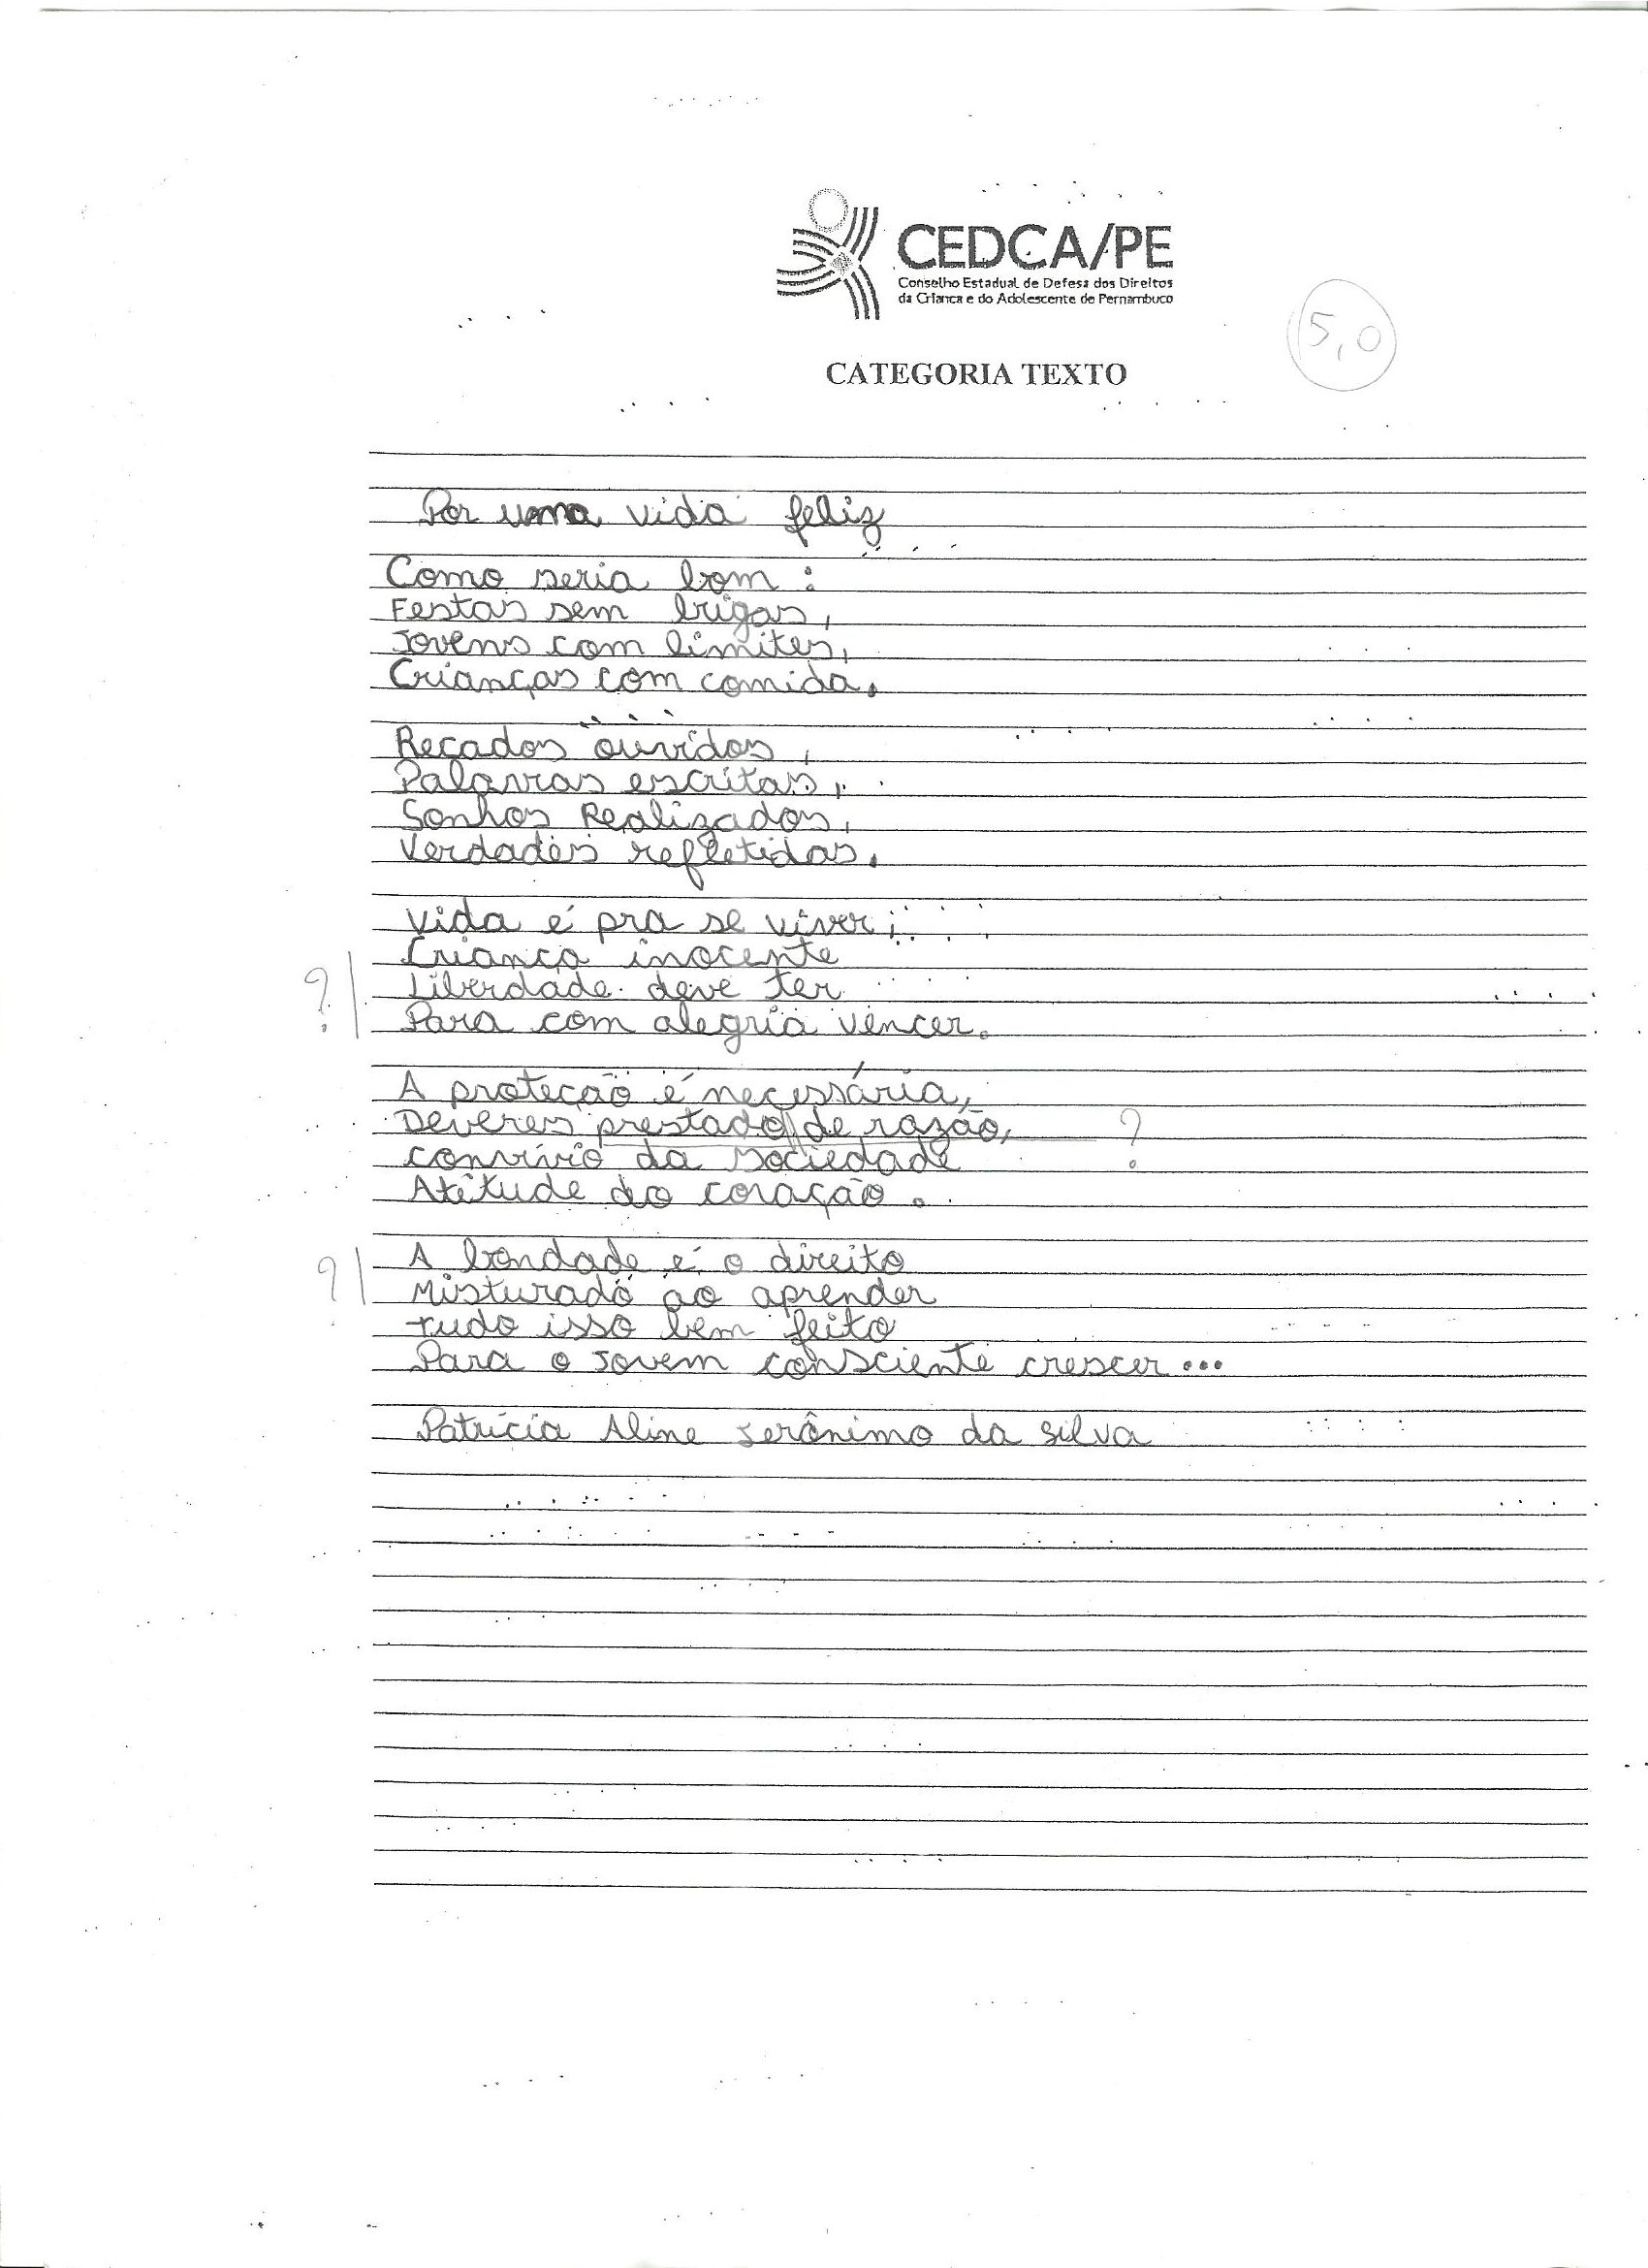 CEDCA/PE
Conselho Estadual de Defesa dos Direitos
da Criança e do Adolescente de Pernambuco
5,0
CATEGORIA TEXTO
Por uma vida feliz
Como seria bom:
Festas sem brigas,
Jovens com limites,
Crianças com comida.
Recados ouvidos,
Palavras escritas,
Sonhos Realizados,
Verdades refletidas.
Vida é pra se viver;
Criança inocente
? Liberdade deve ter
Para com alegria vencer.
A proteção é necessária,
Deveres prestado de razão, ?
convívio da sociedade
Atitude do coração.
? A bondade é o direito
Misturado ao aprender
tudo isso bem feito
Para o Jovem consciente crescer...
Patrícia Aline Jerônimo da Silva